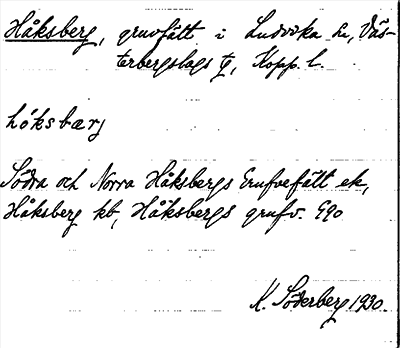 Håksberg, gruvfält i Ludvika sn, Väs-
terbergslags tg, Kopp. l.
hóksbærj
Södra och Norra Håksbergs Grufvefält ek,
Håksberg kb, Håksbergs grufv. G90
K. Söderberg 1930.